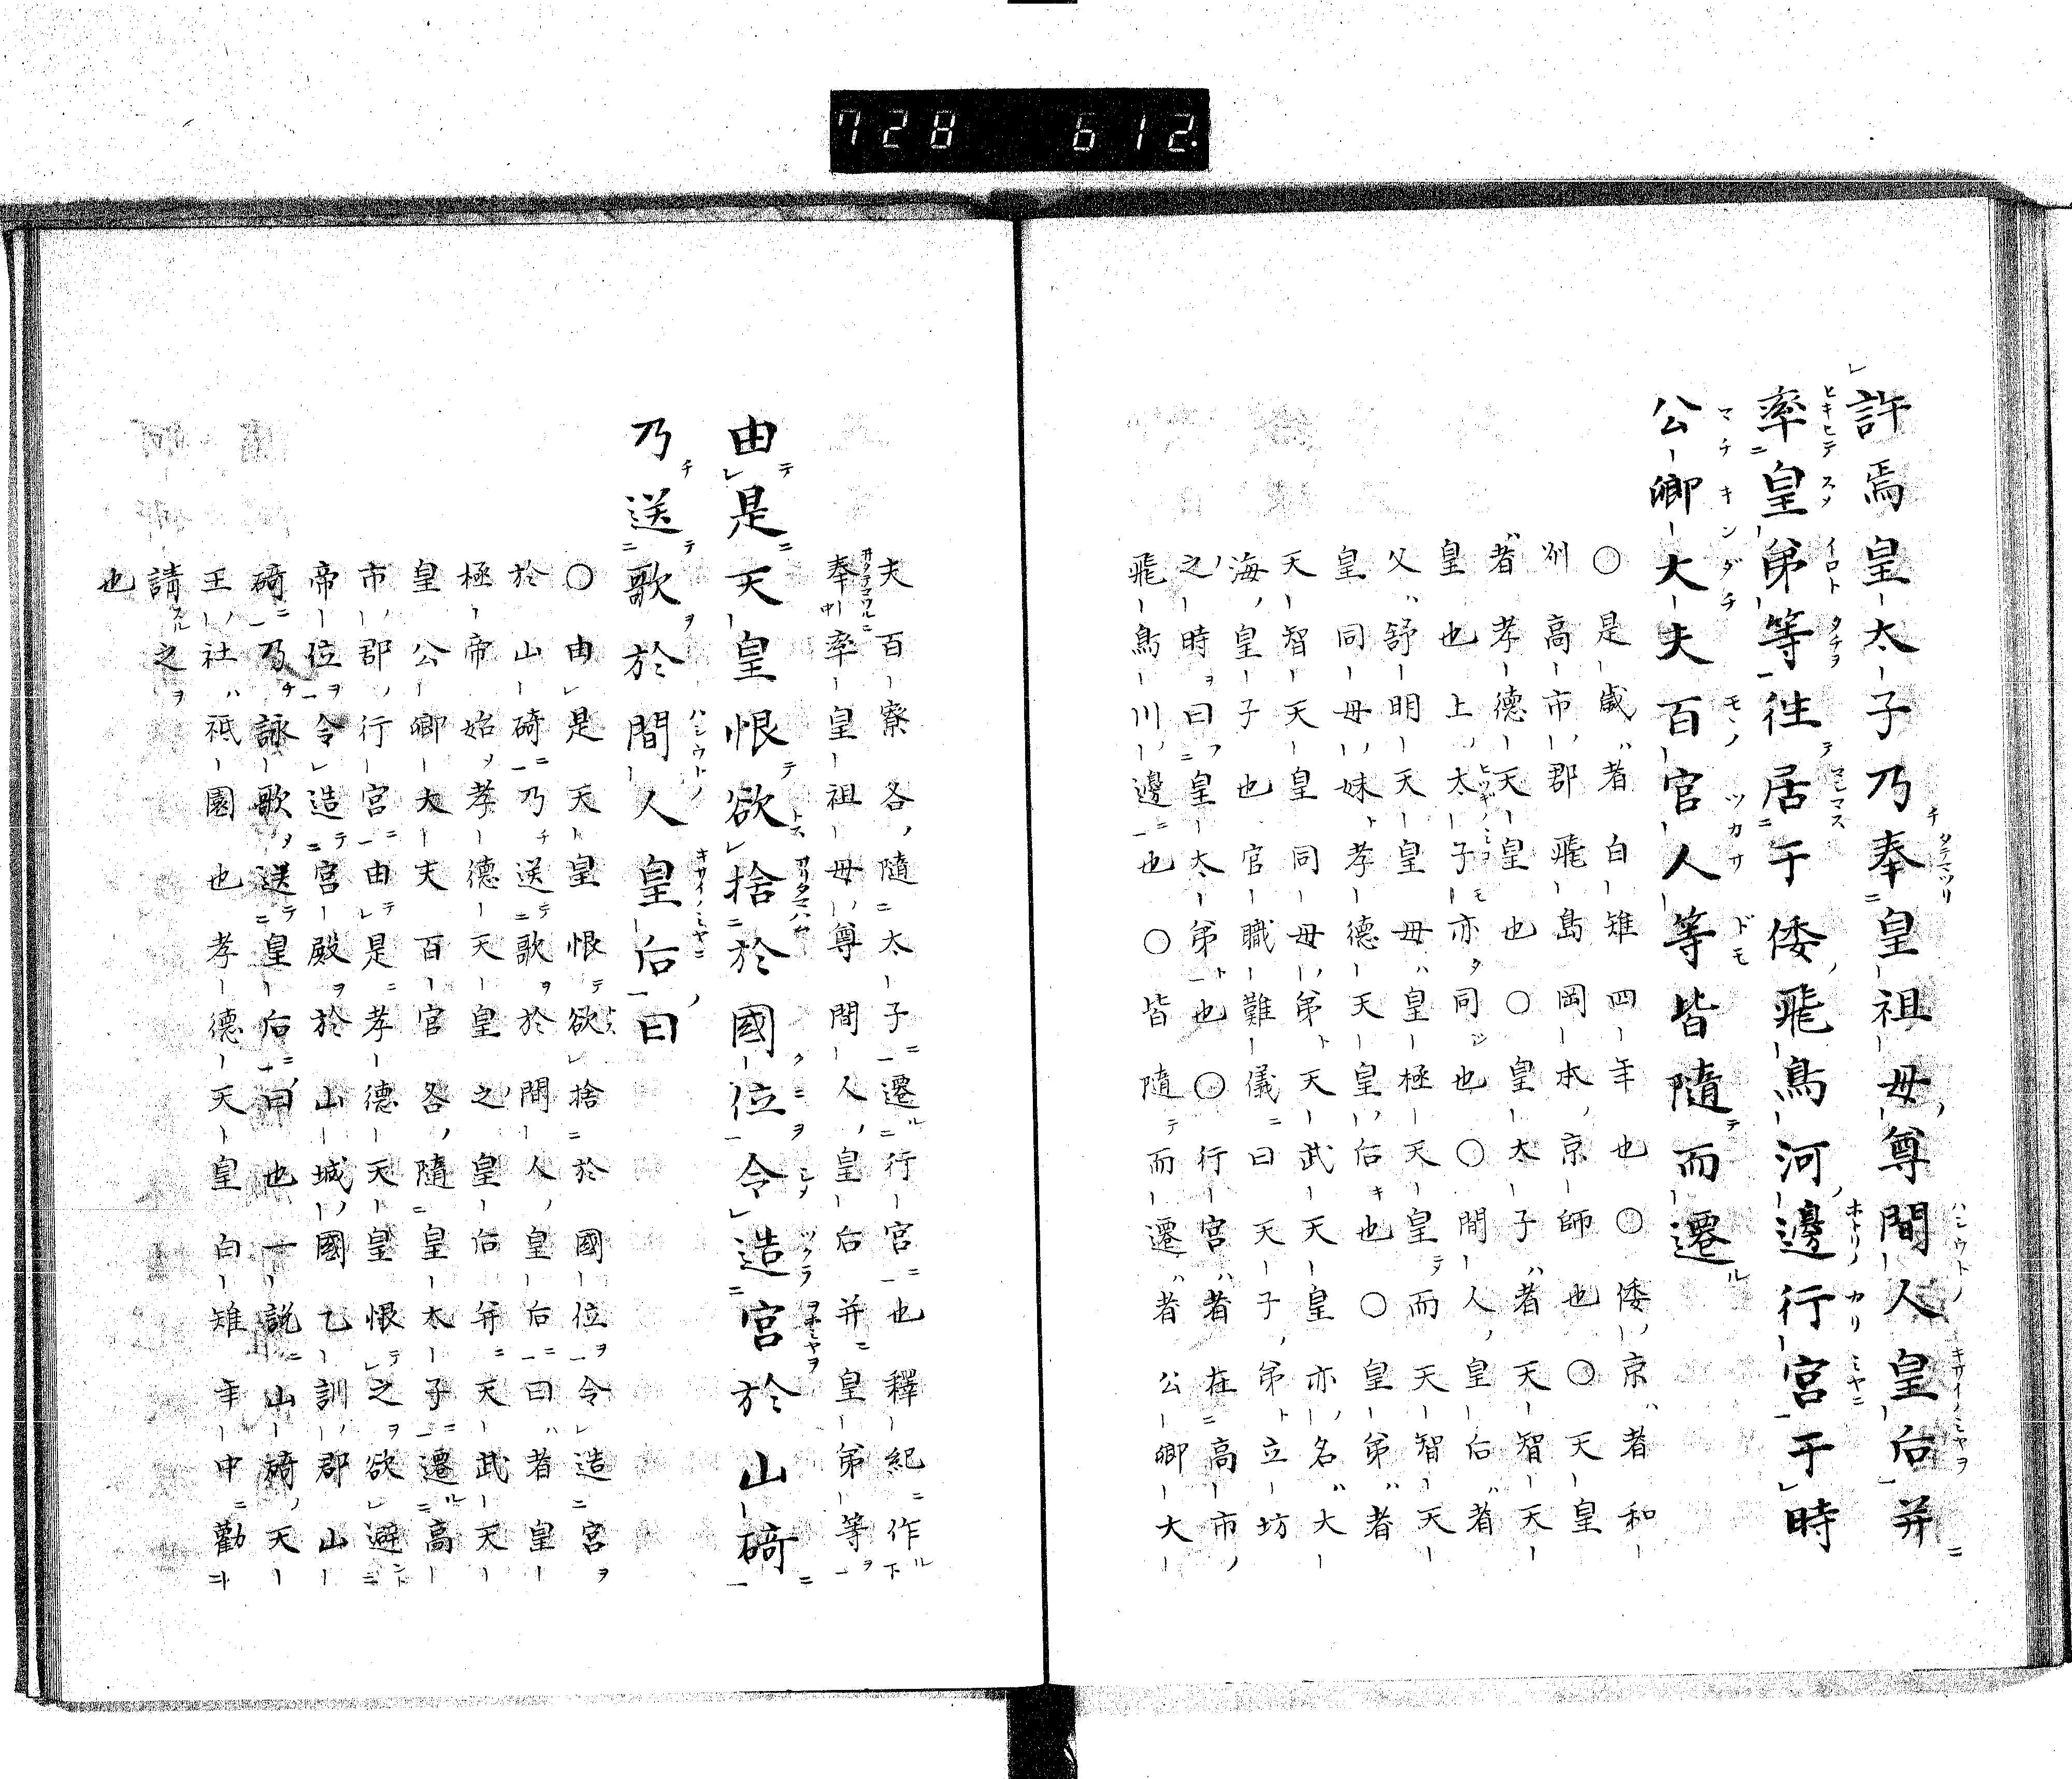 728 612.
許焉皇太子乃奉皇祖母尊間人皇后并
率皇弟等往居于倭飛鳥河邊行宮于時
公卿大夫百官人等皆隨而遷
○是歳者白雉四年也○倭京者和
刕高市郡飛島岡本京師也○天皇
者孝德天皇也○皇太子者天智天
皇也上太子亦同也○間人皇后者
父舒明天皇母皇極天皇而天智天
皇同母妹孝德天皇后也○皇弟者
天智天皇同母弟天武天皇亦名大
海皇子也官職難儀曰天子弟立坊
之時曰皇太弟也○行宮者在高市
飛鳥川邊也○皆隨而遷者公卿大
夫百寮各隨太子遷行宮也釋紀作
奉率皇祖母尊間人皇后并皇弟等
由是天皇恨欲捨於國位令造宮於山碕
乃送歌於間人皇后曰
○由是天皇恨欲捨於國位令造宮
於山碕乃送歌於間人皇后曰者皇
極帝始孝德天皇之皇后并天武天
皇公卿大夫百官各隨皇太子遷高
市郡行宮由是孝德天皇恨之欲避
帝位令造宮殿於山城國乙訓郡山
碕乃詠歌送皇后曰也一説山碕天
王社祗園也孝德天皇白雉年中勸
請之
也